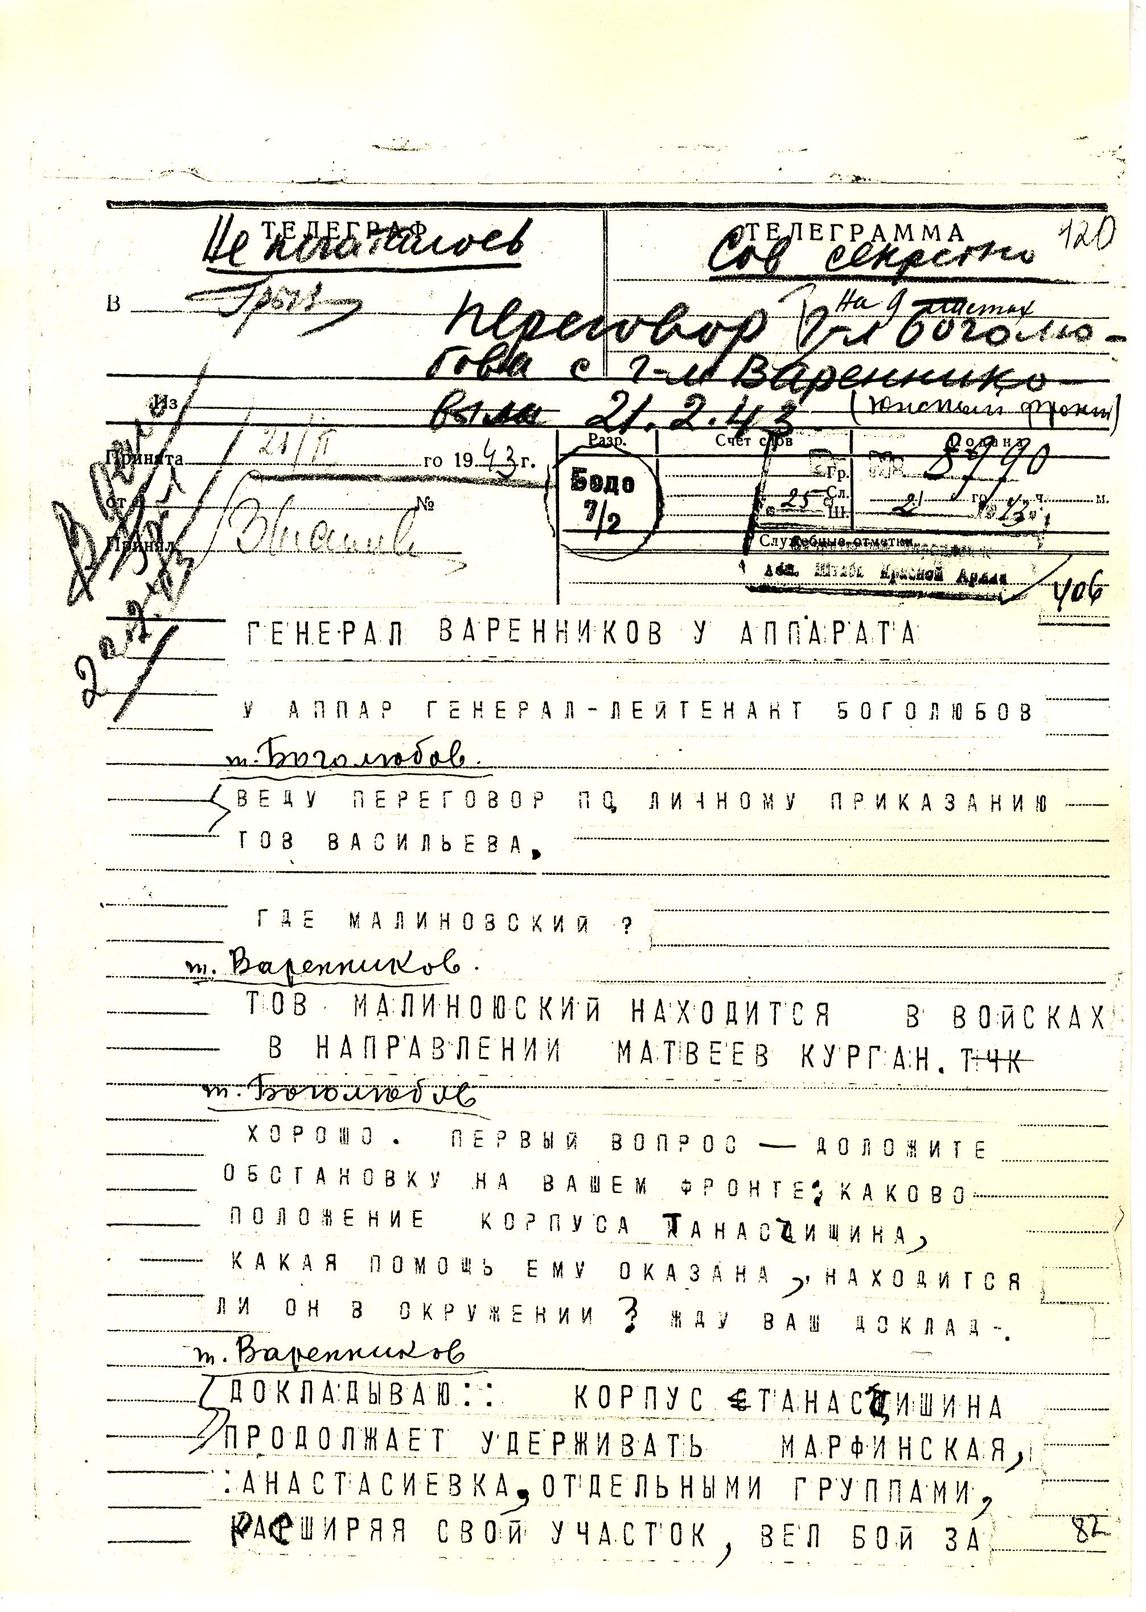 ТЕЛЕГРАФ
ТЕЛЕГРАММА
120
Сов секретно
В
На 9 листах
Переговор г-л Боголю-
бова с г-м Баренико-
вым 21.2.43 (Южный фронт)
Из
Разр.
Счет слов
Подана
Принята 21/II го 1943 г.
Гр.
8990
Бодо
7/2
от
№
25
Сл.
21
го
ч.
м.
Принял
Ш.
Служебные отметки
Штаба Красной Армии
406
ГЕНЕРАЛ ВАРЕННИКОВ У АППАРАТА
У АППАР ГЕНЕРАЛ-ЛЕЙТЕНАНТ БОГОЛЮБОВ
т. Боголюбов.
ВЕДУ ПЕРЕГОВОР ПО ЛИЧНОМУ ПРИКАЗАНИЮ
ТОВ ВАСИЛЬЕВА.
ГДЕ МАЛИНОВСКИЙ ?
т. Варенников.
ТОВ МАЛИНОЮСКИЙ НАХОДИТСЯ В ВОЙСКАХ
В НАПРАВЛЕНИИ МАТВЕЕВ КУРГАН. ТЧК
т. Боголюбов
ХОРОШО. ПЕРВЫЙ ВОПРОС — ДОЛОЖИТЕ
ОБСТАНОВКУ НА ВАШЕМ ФРОНТЕ; КАКОВО
ПОЛОЖЕНИЕ КОРПУСА ТАНАСЧИШИНА,
КАКАЯ ПОМОЩЬ ЕМУ ОКАЗАНА, НАХОДИТСЯ
ЛИ ОН В ОКРУЖЕНИИ ? ЖДУ ВАШ ДОКЛАД-.
т. Варенников
ДОКЛАДЫВАЮ:: КОРПУС СТАНАСЧИШИНА
ПРОДОЛЖАЕТ УДЕРЖИВАТЬ МАРФИНСКАЯ,
:АНАСТАСИЕВКА, ОТДЕЛЬНЫМИ ГРУППАМИ,
РАСШИРЯЯ СВОЙ УЧАСТОК, ВЕЛ БОЙ ЗА
82